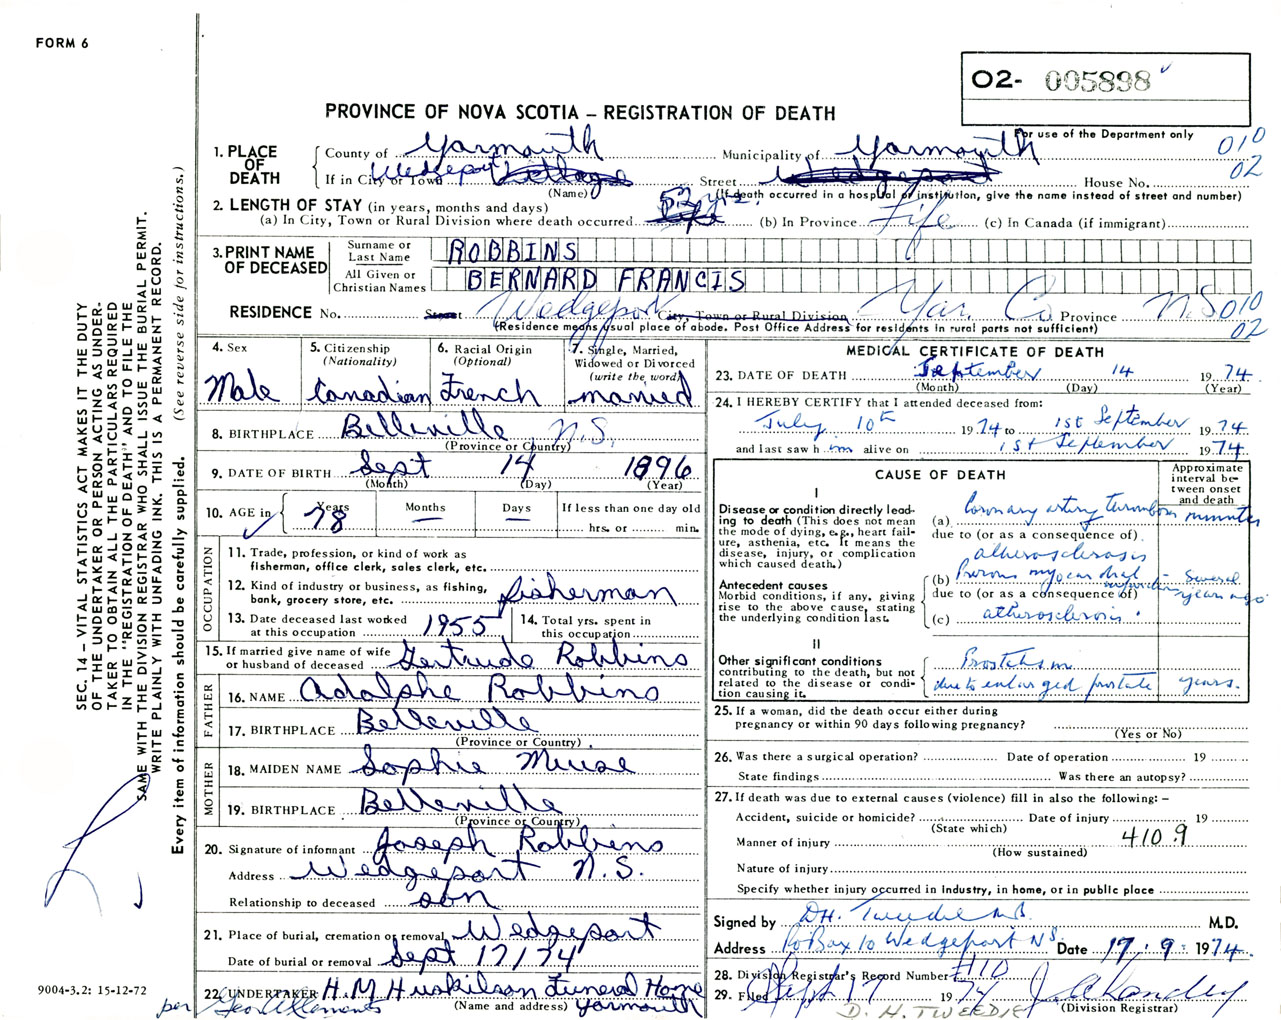 FORM 6
O2- 005898
PROVINCE OF NOVA SCOTIA – REGISTRATION OF DEATH
For use of the Department only
010
02
1. PLACE OF DEATH
County of Yarmouth Municipality of Yarmouth
If in City or Town Wedgeport Village Street Wedgeport House No.
(Name) (If death occurred in a hospital or institution, give the name instead of street and number)
2. LENGTH OF STAY (in years, months and days)
(a) In City, Town or Rural Division where death occurred 52 yrs. (b) In Province Life (c) In Canada (if immigrant)
3. PRINT NAME OF DECEASED
Surname or Last Name ROBBINS
All Given or Christian Names BERNARD FRANCIS
RESIDENCE No. Street Wedgeport City, Town or Rural Division Yar. Co. Province N.S. 010
02
(Residence means usual place of abode. Post Office Address for residents in rural parts not sufficient)
SEC. 14 – VITAL STATISTICS ACT MAKES IT THE DUTY
OF THE UNDERTAKER OR PERSON ACTING AS UNDER-
TAKER TO OBTAIN ALL THE PARTICULARS REQUIRED
IN THE "REGISTRATION OF DEATH" AND TO FILE THE
SAME WITH THE DIVISION REGISTRAR WHO SHALL ISSUE THE BURIAL PERMIT.
WRITE PLAINLY WITH UNFADING INK. THIS IS A PERMANENT RECORD.
Every item of information should be carefully supplied. (See reverse side for instructions.)
4. Sex
Male
5. Citizenship
(Nationality)
Canadian
6. Racial Origin
(Optional)
French
7. Single, Married,
Widowed or Divorced
(write the word)
married
8. BIRTHPLACE Belleville N.S.
(Province or Country)
9. DATE OF BIRTH Sept 14 1896
(Month) (Day) (Year)
10. AGE in Years 78 Months — Days — If less than one day old
hrs. or min.
OCCUPATION
11. Trade, profession, or kind of work as
fisherman, office clerk, sales clerk, etc.
12. Kind of industry or business, as fishing,
bank, grocery store, etc. fisherman
13. Date deceased last worked
at this occupation 1955
14. Total yrs. spent in
this occupation
15. If married give name of wife
or husband of deceased Gertrude Robbins
FATHER
16. NAME Adolphe Robbins
17. BIRTHPLACE Belleville
(Province or Country)
MOTHER
18. MAIDEN NAME Sophie Meuse
19. BIRTHPLACE Belleville
(Province or Country)
20. Signature of informant Joseph Robbins
Address Wedgeport N.S.
Relationship to deceased son
21. Place of burial, cremation or removal Wedgeport
Date of burial or removal Sept 17/74
22. UNDERTAKER H.M Huskilson Funeral Home
(Name and address) Yarmouth
per Geo A Clements
9004-3.2: 15-12-72
MEDICAL CERTIFICATE OF DEATH
23. DATE OF DEATH September 14 1974
(Month) (Day) (Year)
24. I HEREBY CERTIFY that I attended deceased from:
July 10th 1974 to 1st September 1974
and last saw him alive on 1st September 1974
CAUSE OF DEATH
Approximate
interval be-
tween onset
and death
I
Disease or condition directly lead-
ing to death (This does not mean
the mode of dying, e.g., heart fail-
ure, asthenia, etc. It means the
disease, injury, or complication
which caused death.)
(a) Coronary artery thrombosis minutes
due to (or as a consequence of)
atherosclerosis
Antecedent causes
Morbid conditions, if any, giving
rise to the above cause, stating
the underlying condition last.
(b) Previous myocardial infarction - several years ago
due to (or as a consequence of)
(c) atherosclerosis.
II
Other significant conditions
contributing to the death, but not
related to the disease or condi-
tion causing it.
Prostatism
due to enlarged prostate years.
25. If a woman, did the death occur either during
pregnancy or within 90 days following pregnancy?
(Yes or No)
26. Was there a surgical operation? Date of operation 19
State findings Was there an autopsy?
27. If death was due to external causes (violence) fill in also the following: –
Accident, suicide or homicide? Date of injury 19
(State which)
Manner of injury 410.9
(How sustained)
Nature of injury
Specify whether injury occurred in industry, in home, or in public place
Signed by D.H. Tweedie M.D. M.D.
Address PO Box 10 Wedgeport NS Date 17.9. 1974
28. Division Registrar's Record Number #110
29. Filed Sept 17 1974
(Division Registrar)
D. H. TWEEDIE